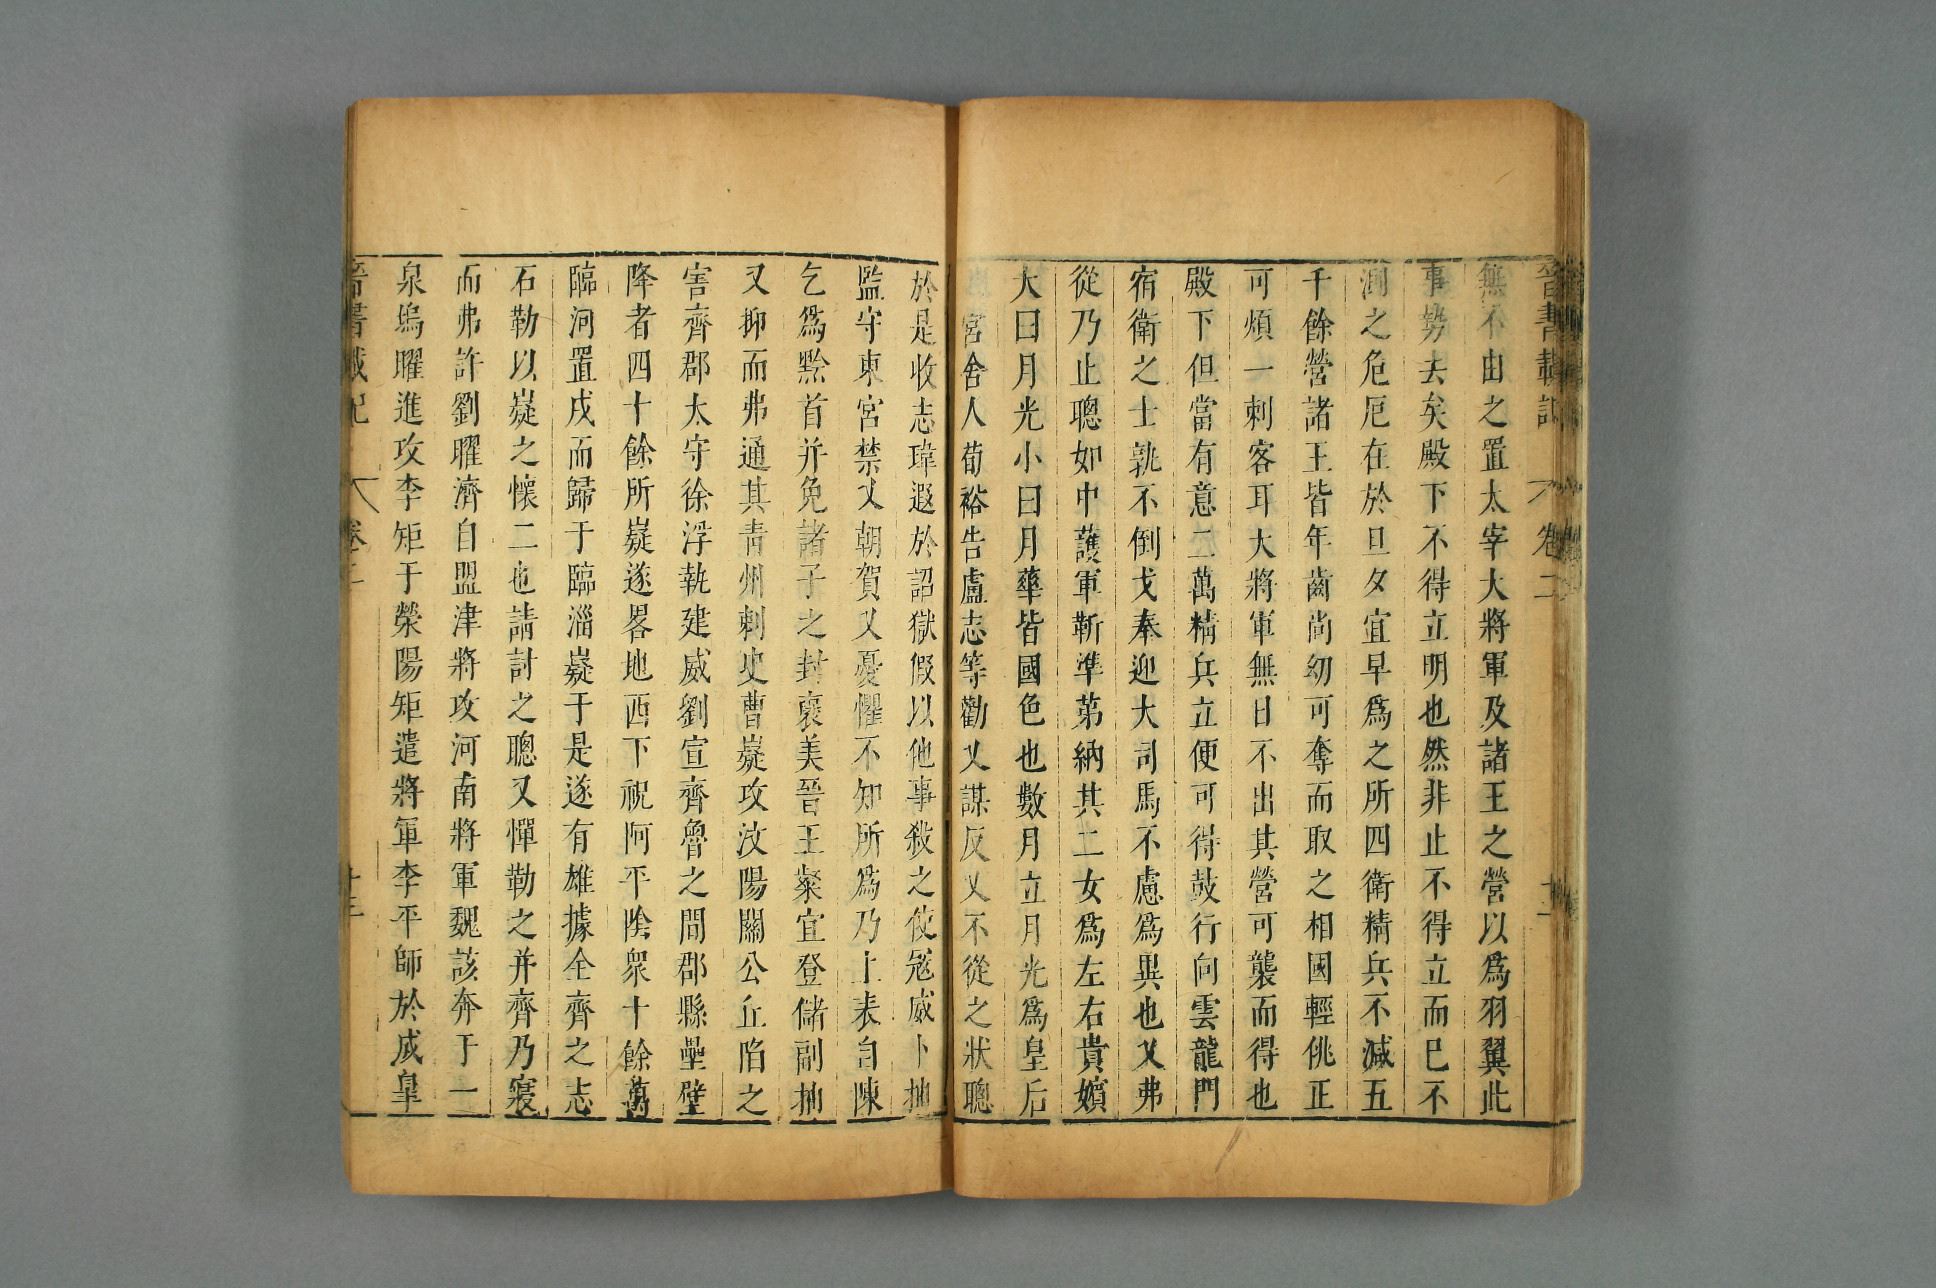 晉書載記 卷二
無不由之置太宰大將軍及諸王之營以爲羽翼此
事勢去矣殿下不得立明也然非止不得立而巳不
測之危厄在於旦夕宜早爲之所四衛精兵不減五
千餘營諸王皆年齒尚幼可奪而取之相國輕佻正
可煩一刺客耳大將軍無日不出其營可襲而得也
殿下但當有意二萬精兵立便可得鼓行向雲龍門
宿衛之士孰不倒戈奉迎大司馬不慮爲異也乂弗
從乃止聰如中護軍靳準第納其二女爲左右貴嬪
大曰月光小曰月華皆國色也數月立月光爲皇后
宮舍人荀裕告盧志等勸乂謀反乂不從之狀聰
於是收志瑋遐於詔獄假以他事殺之使冠威卜抽
監守東宮禁乂朝賀乂憂懼不知所爲乃上表自陳
乞爲黔首并免諸子之封襃美晉王粲宜登儲副抽
又抑而弗通其青州刺史曹嶷攻汶陽關公丘陷之
害齊郡太守徐浮執建威劉宣齊魯之間郡縣壘壁
降者四十餘所嶷遂畧地西下祝阿平陰衆十餘萬
臨河置戍而歸于臨淄嶷于是遂有雄據全齊之志
石勒以嶷之懷二也請討之聰又憚勒之并齊乃寢
而弗許劉曜濟自盟津將攻河南將軍魏該奔于一
泉塢曜進攻李矩于滎陽矩遣將軍李平師於成臯
晉書載記 卷二 十三